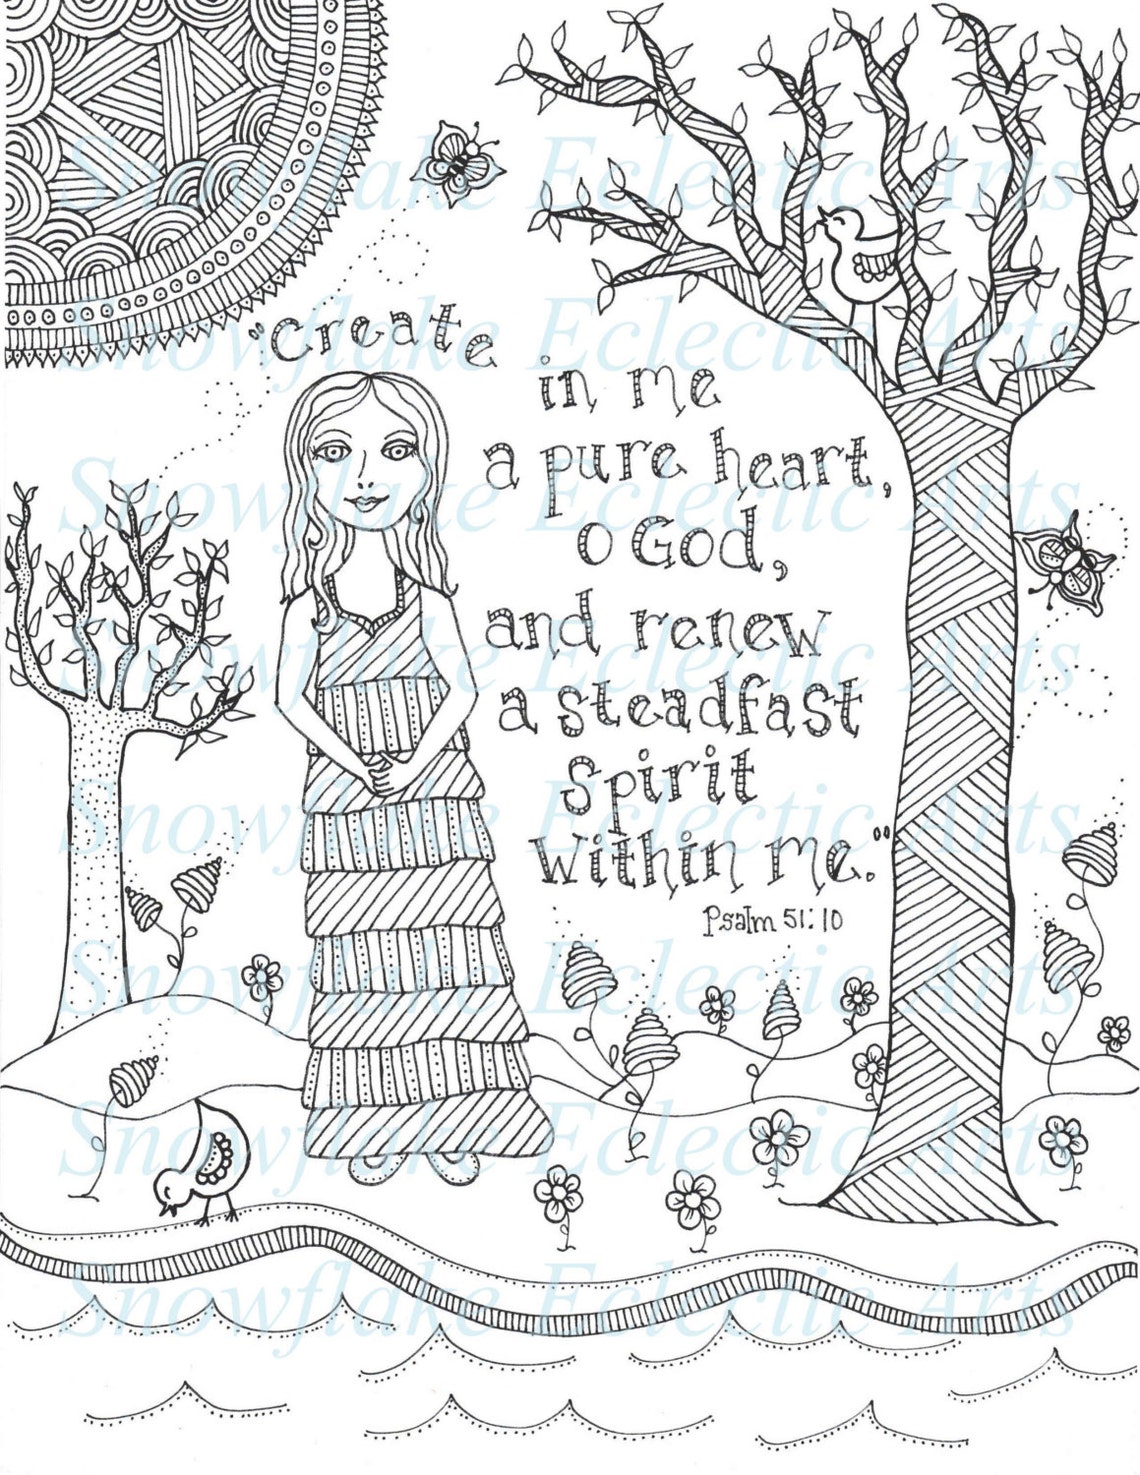 Snowflake Eclectic Arts
Snowflake Eclectic Arts
"Create
in me
a pure heart,
Snowflake Eclectic Arts
O God,
and renew
Snowflake Eclectic Arts
a steadfast
spirit
Snowflake Eclectic Arts
within me."
Psalm 51:10
Snowflake Eclectic Arts
Snowflake Eclectic Arts
Snowflake Eclectic Arts